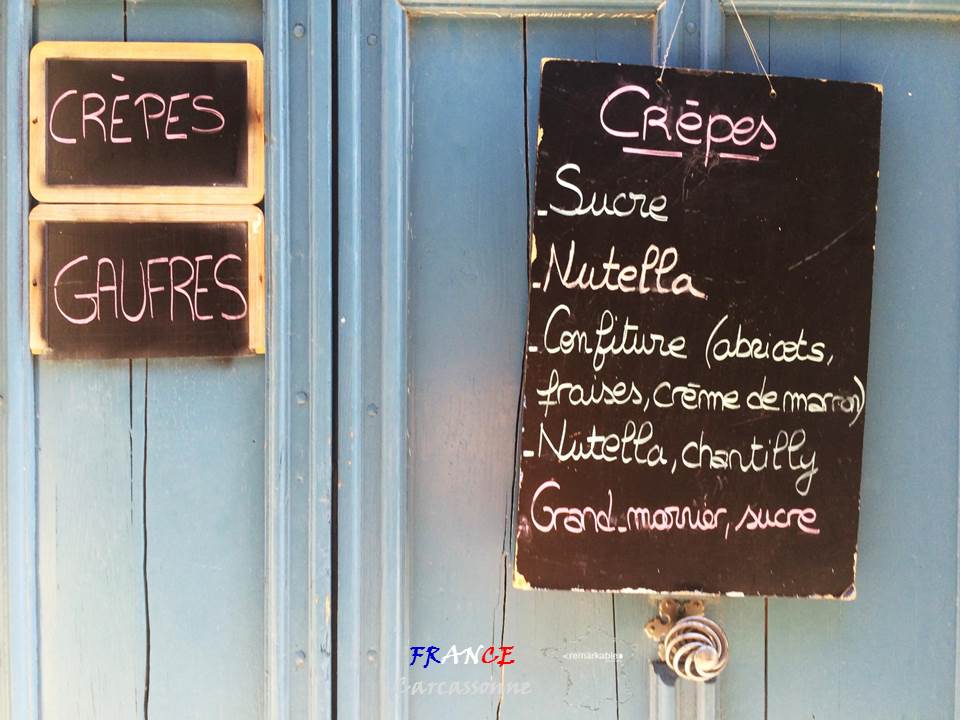 CRÈPES
GAUFRES
Crēpes
- Sucre
- Nutella
- Confiture (abricots,
fraises, crēme de marron)
- Nutella, chantilly
- Grand-marnier, sucre
FRANCE
Carcassonne
<remarkable>